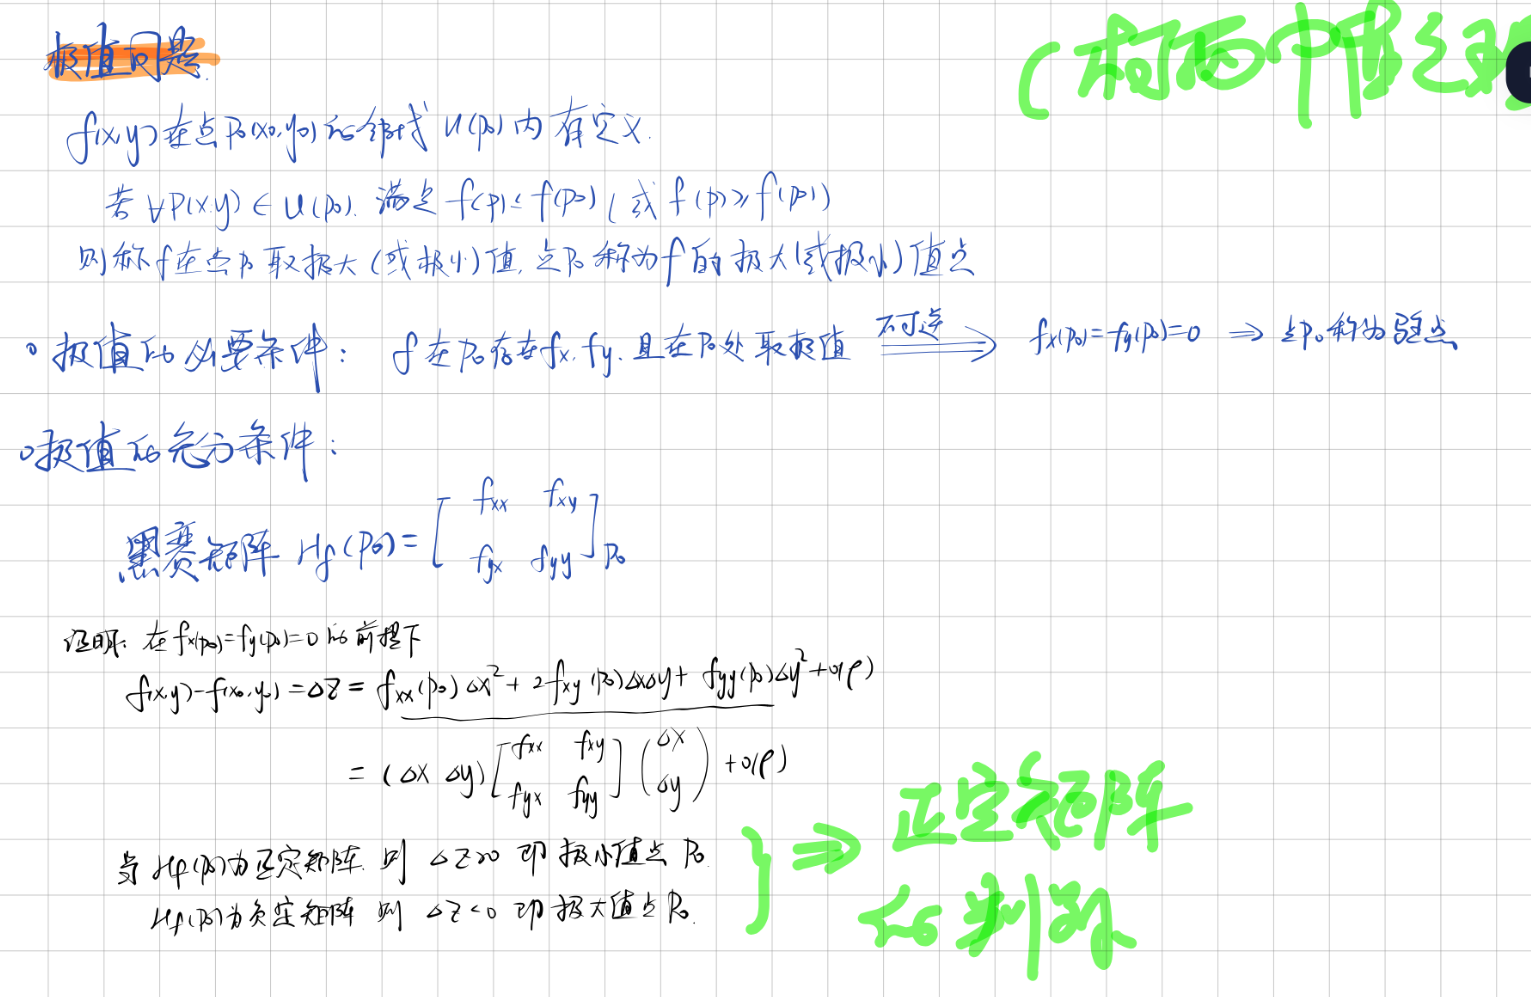 极值问题.
(柯西中值定理
f(x,y)在点P₀(x₀,y₀)的邻域 U(P₀)内有定义.
若 ∀P(x,y) ∈ U(P₀). 满足 f(P)≤f(P₀) (或 f(P)≥f(P₀))
则称f在点P₀取极大(或极小)值,点P₀称为f的极大(或极小)值点
极值的必要条件: f在P₀存在fx,fy.且在P₀处取极值 不可逆 ⟹ fx(P₀)=fy(P₀)=0 ⟹ 点P₀称为驻点
极值的充分条件:
黑赛矩阵 Hf(P₀)= [ fxx fxy
fyx fyy ]P₀
证明: 在fx(P₀)=fy(P₀)=0的前提下
f(x,y)-f(x₀,y₀)=ΔZ= fxx(P₀)Δx²+2fxy(P₀)ΔxΔy+fyy(P₀)Δy²+o(ρ)
= (Δx Δy) [ fxx fxy ] ( Δx ) +o(ρ)
fyx fyy Δy
当 Hf(P₀)为正定矩阵 则 ΔZ>0 即 极小值点 P₀.
Hf(P₀)为负定矩阵 则 ΔZ<0 即 极大值点 P₀.
} ⟹ 正定矩阵
的判别